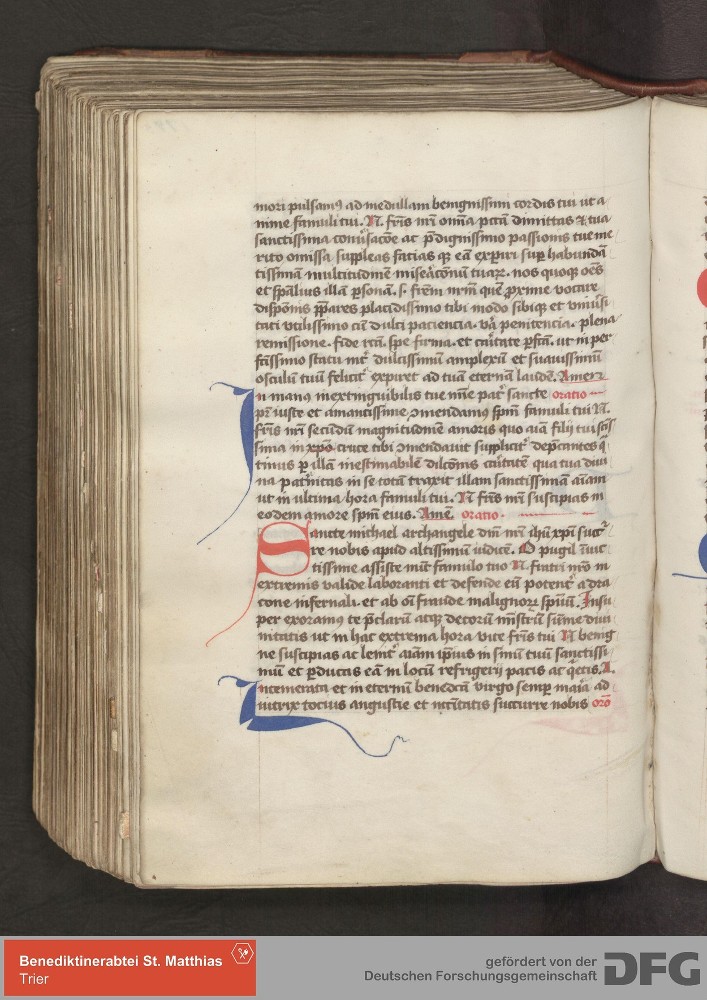 mori pulsamꝰ ad medullam benignissimi cordis tui ut a
nime famuli tui. N. fr̄is nr̄i om̄ia pctā dimittas & tua
sanctissima cōuʾsacōe ac p̄dignissimo passionis tue me
rito omissa suppleas facias qꝫ eā exꝑiri suꝑ habundā
tissimā multitudinē miseʾacōnū tuarꝝ. nos quoqꝫ oēs
et sp̄alius illā ꝑsonā. s. fr̄em nr̄m quē ꝓxime vocare
dispōnis p̄pares placidissimo tibi modo sibiqꝫ et vniuʾsi
tati vtilissimo cū dulci paciencia. vʾa penitencia. plena
remissione. fide rcā. spe firma. et caʾitate ꝑfcā. ut in per
fctissimo statu intʾ dulcissimū amplexū et suauissimū
osculū tuū felicitʾ expiret ad tuā eternā laudē. Amen
In manus inextinguibilis tue mīe patʾ sancte oratio
pr̄ iuste et amantissime ꝯmendamus sp̄m famuli tui N.
fr̄is nr̄i secūdū magnitudinē amoris quo aīā filij tui scīs
sima in xp̄o cruce tibi ꝯmendauit supplicitʾ dep̄cantes q̄
tinus ꝑ illā inestimabilē dilcōnis caʾitatē qua tua diui
na patʾnitas in se totā traxit illam sanctissimā aīam
ut in ultima hora famuli tui. N fr̄is nr̄i suscipias in
eodem amore sp̄m eius. Amē. oratio.
Sancte michael archangele dn̄i nr̄i ih̄u xp̄i succʾ
re nobis apud altissimū iudicē. O pugil īuic
tissime assiste nūc famulo tuo N. fratri nr̄o in
extremis valide laboranti et defende eū potentʾ a dra
cone infernali. et ab oī fraude malignorꝝ sp̄uū. Insu
per exoramus te p̄clarū atqꝫ decorū mīstrū sūme diui
nitatis ut in hac extrema hora vite fr̄is tui N benig
ne suscipias ac lenitʾ aīam ip̄ius in sinū tuū sanctissi
mū et ꝑducas eā in locū refrigerij pacis ac q̄etis. A.
Intemerata et in eternū benedcā virgo semꝑ maʾia ad
iutrix tocius angustie et nc̄itatis succurre nobis oro
Benediktinerabtei St. Matthias
Trier
gefördert von der
Deutschen Forschungsgemeinschaft
DFG